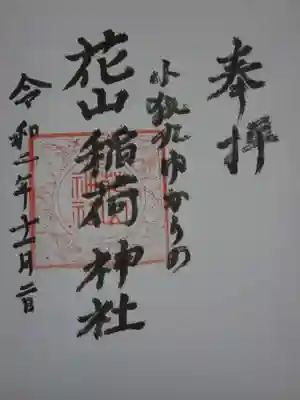 奉拝
小狐丸ゆかりの
花山稲荷神社
令和二年十一月二日